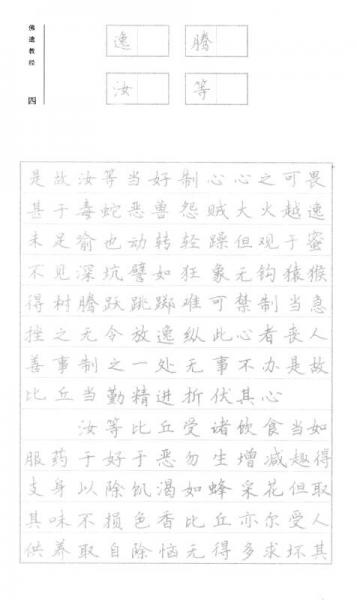 佛遗教经
四
逸 腾
汝 等
是故汝等当好制心心之可畏
甚于毒蛇恶兽怨贼大火越逸
未足喻也动转轻躁但观于蜜
不见深坑譬如狂象无钩猿猴
得树腾跃跳踯难可禁制当急
挫之无令放逸纵此心者丧人
善事制之一处无事不办是故
比丘当勤精进折伏其心
汝等比丘受诸饮食当如
服药于好于恶勿生增减趣得
支身以除饥渴如蜂采花但取
其味不损色香比丘亦尔受人
供养取自除恼无得多求坏其